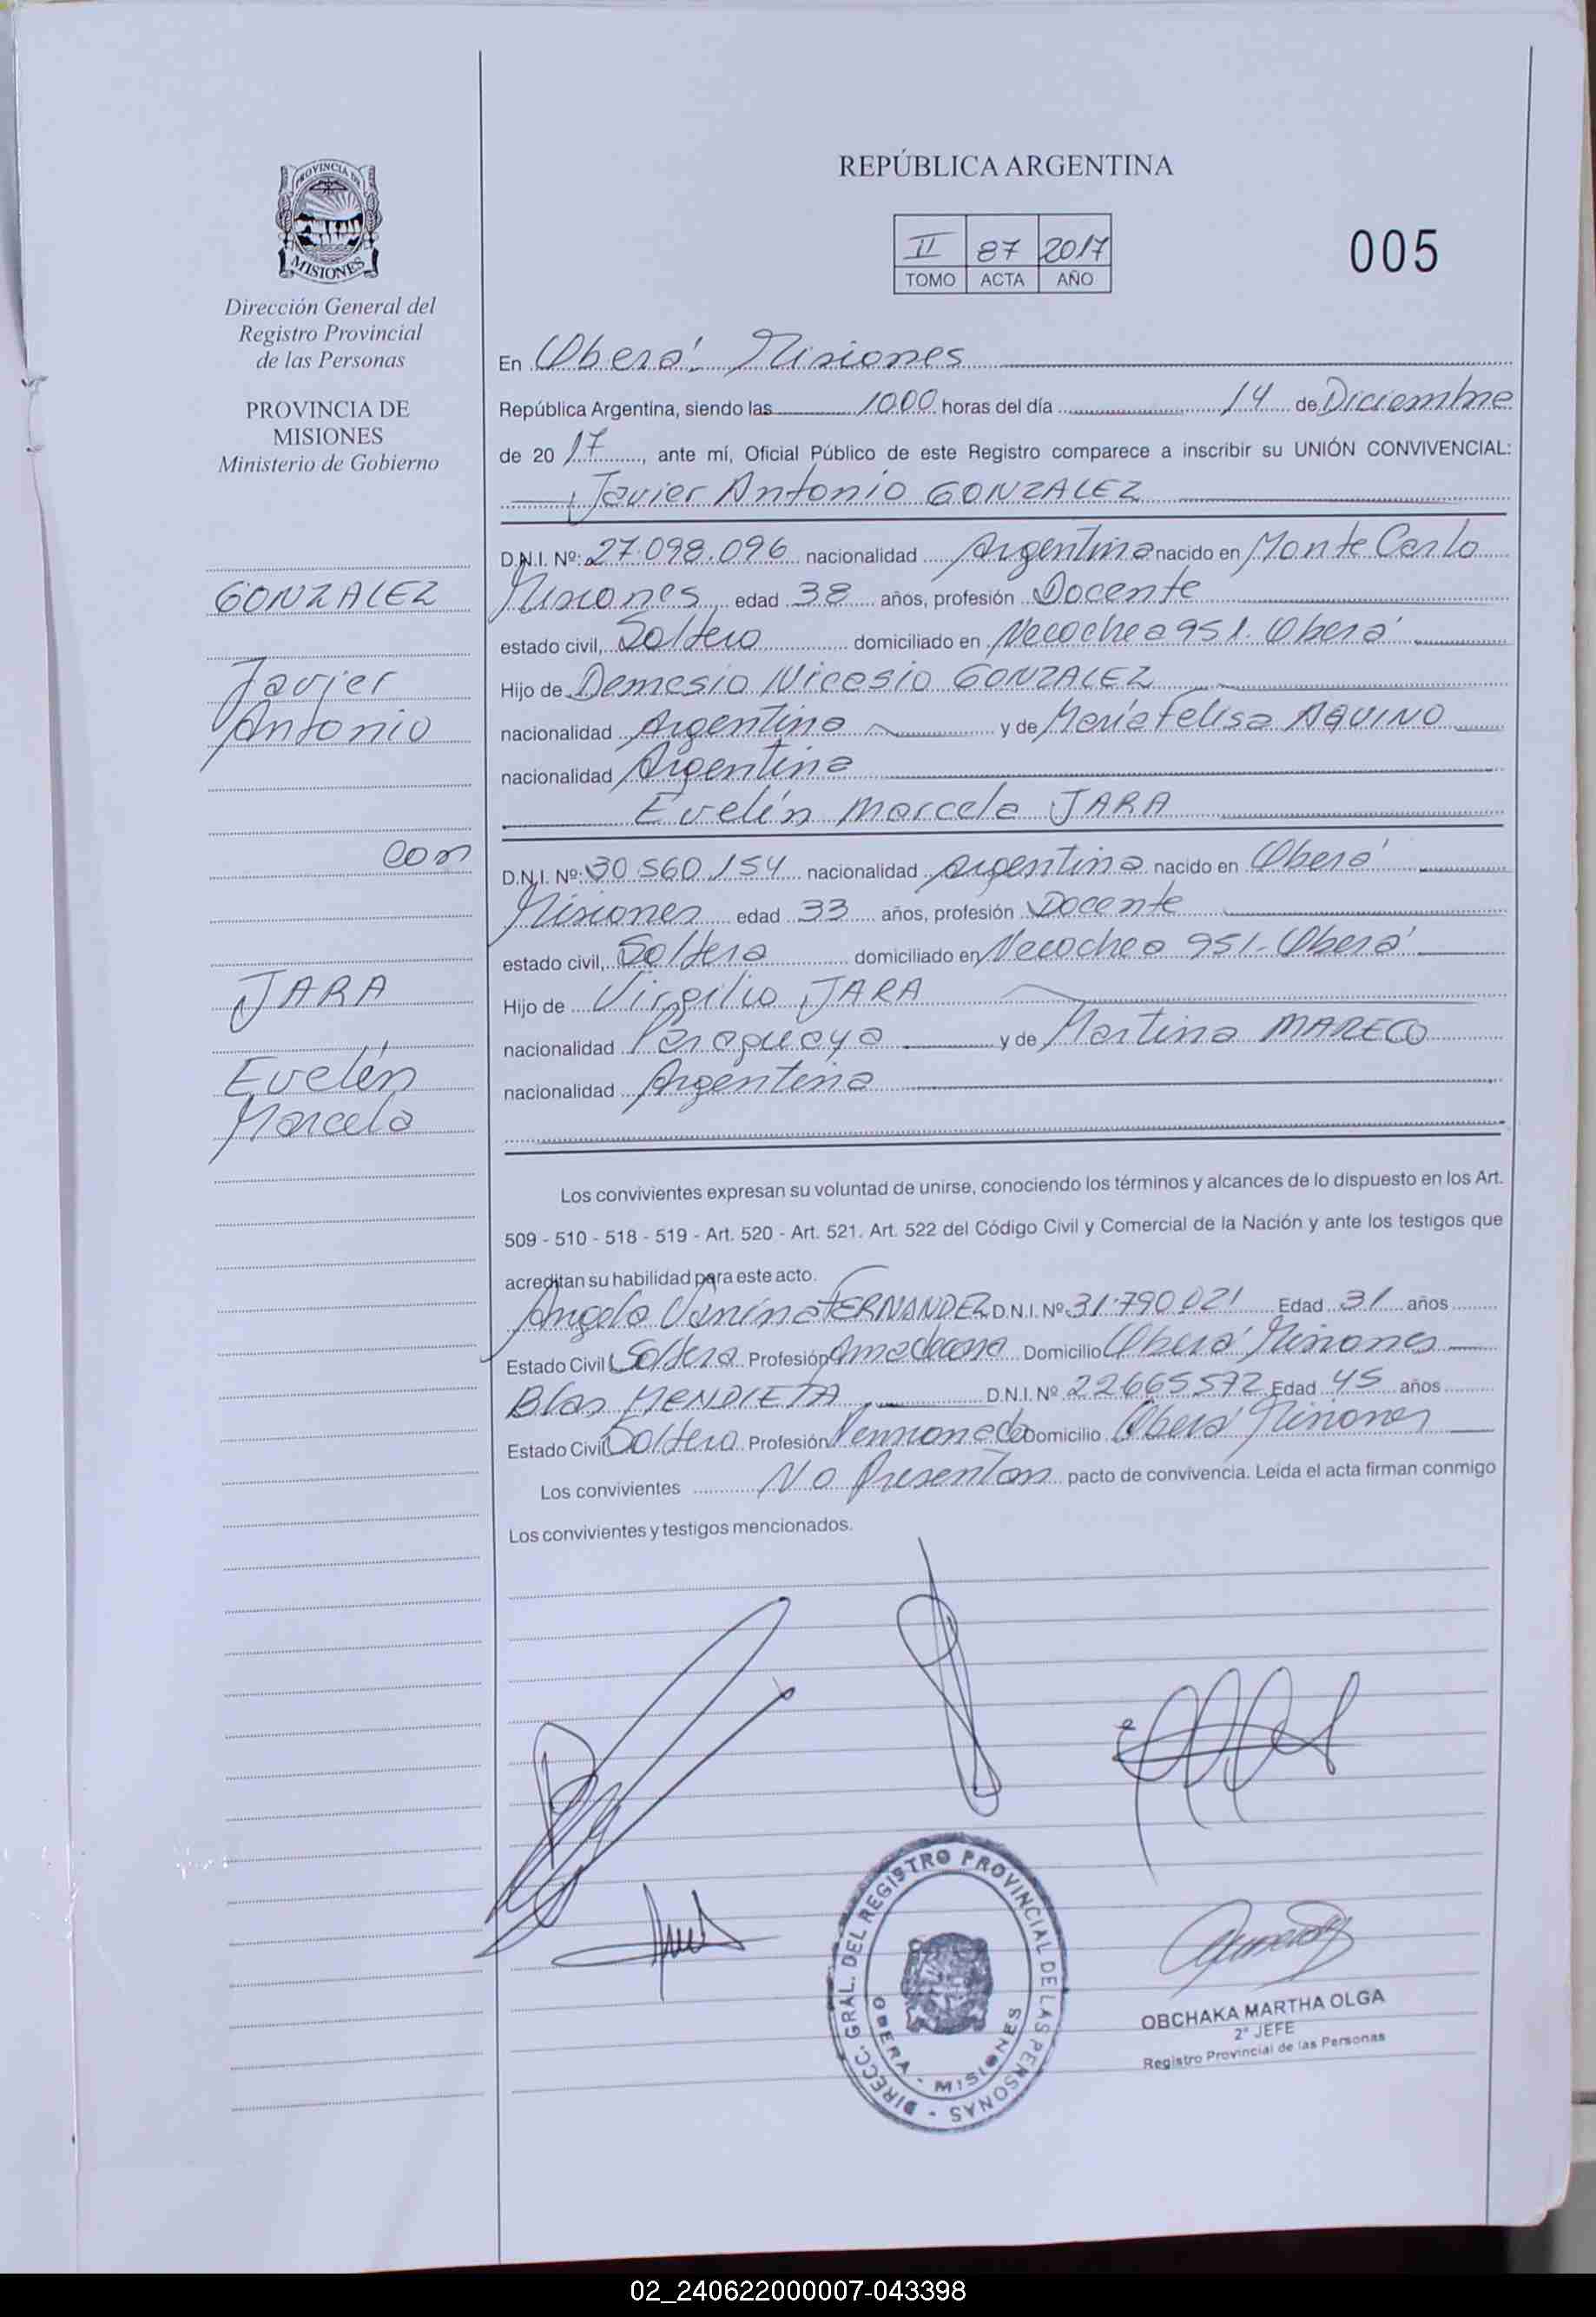 PROVINCIA DE
MISIONES
Dirección General del
Registro Provincial
de las Personas
PROVINCIA DE
MISIONES
Ministerio de Gobierno
GONZALEZ
Javier
Antonio
con
JARA
Evelin
Marcela
REPÚBLICA ARGENTINA
II 87 2017
TOMO ACTA AÑO
005
En Oberá Misiones
República Argentina, siendo las 10.00 horas del día 14 de Diciembre
de 20 17, ante mí, Oficial Público de este Registro comparece a inscribir su UNIÓN CONVIVENCIAL:
Javier Antonio GONZALEZ
D.N.I. Nº: 27.098.096 nacionalidad Argentina nacido en Monte Carlo
Misiones edad 38 años, profesión Docente
estado civil, Soltero domiciliado en Necochea 951. Oberá
Hijo de Demesio Nicesio GONZALEZ
nacionalidad Argentina y de María Felisa AQUINO
nacionalidad Argentina
Evelín Marcela JARA
D.N.I. Nº: 30 560.154 nacionalidad Argentina nacido en Oberá
Misiones edad 33 años, profesión Docente
estado civil, Soltera domiciliado en Necochea 951- Oberá
Hijo de Virgilio JARA
nacionalidad Paraguaya y de Martina MARECO
nacionalidad Argentina
Los convivientes expresan su voluntad de unirse, conociendo los términos y alcances de lo dispuesto en los Art.
509 - 510 - 518 - 519 - Art. 520 - Art. 521. Art. 522 del Código Civil y Comercial de la Nación y ante los testigos que
acreditan su habilidad para este acto.
Angela Vanina FERNANDEZ D.N.I. Nº 31.790 021 Edad 31 años
Estado Civil Soltera Profesión Ama de casa Domicilio Oberá Misiones
Blas MENDIETA D.N.I. Nº 22665572 Edad 45 años
Estado Civil Soltero Profesión Pensionado Domicilio Oberá Misiones
Los convivientes No Presentan pacto de convivencia. Leida el acta firman conmigo
Los convivientes y testigos mencionados.
DIRECC. GRAL. DEL REGISTRO PROVINCIAL DE LAS PERSONAS -
OBERA - MISIONES
OBCHAKA MARTHA OLGA
2º JEFE
Registro Provincial de las Personas
02_240622000007-043398